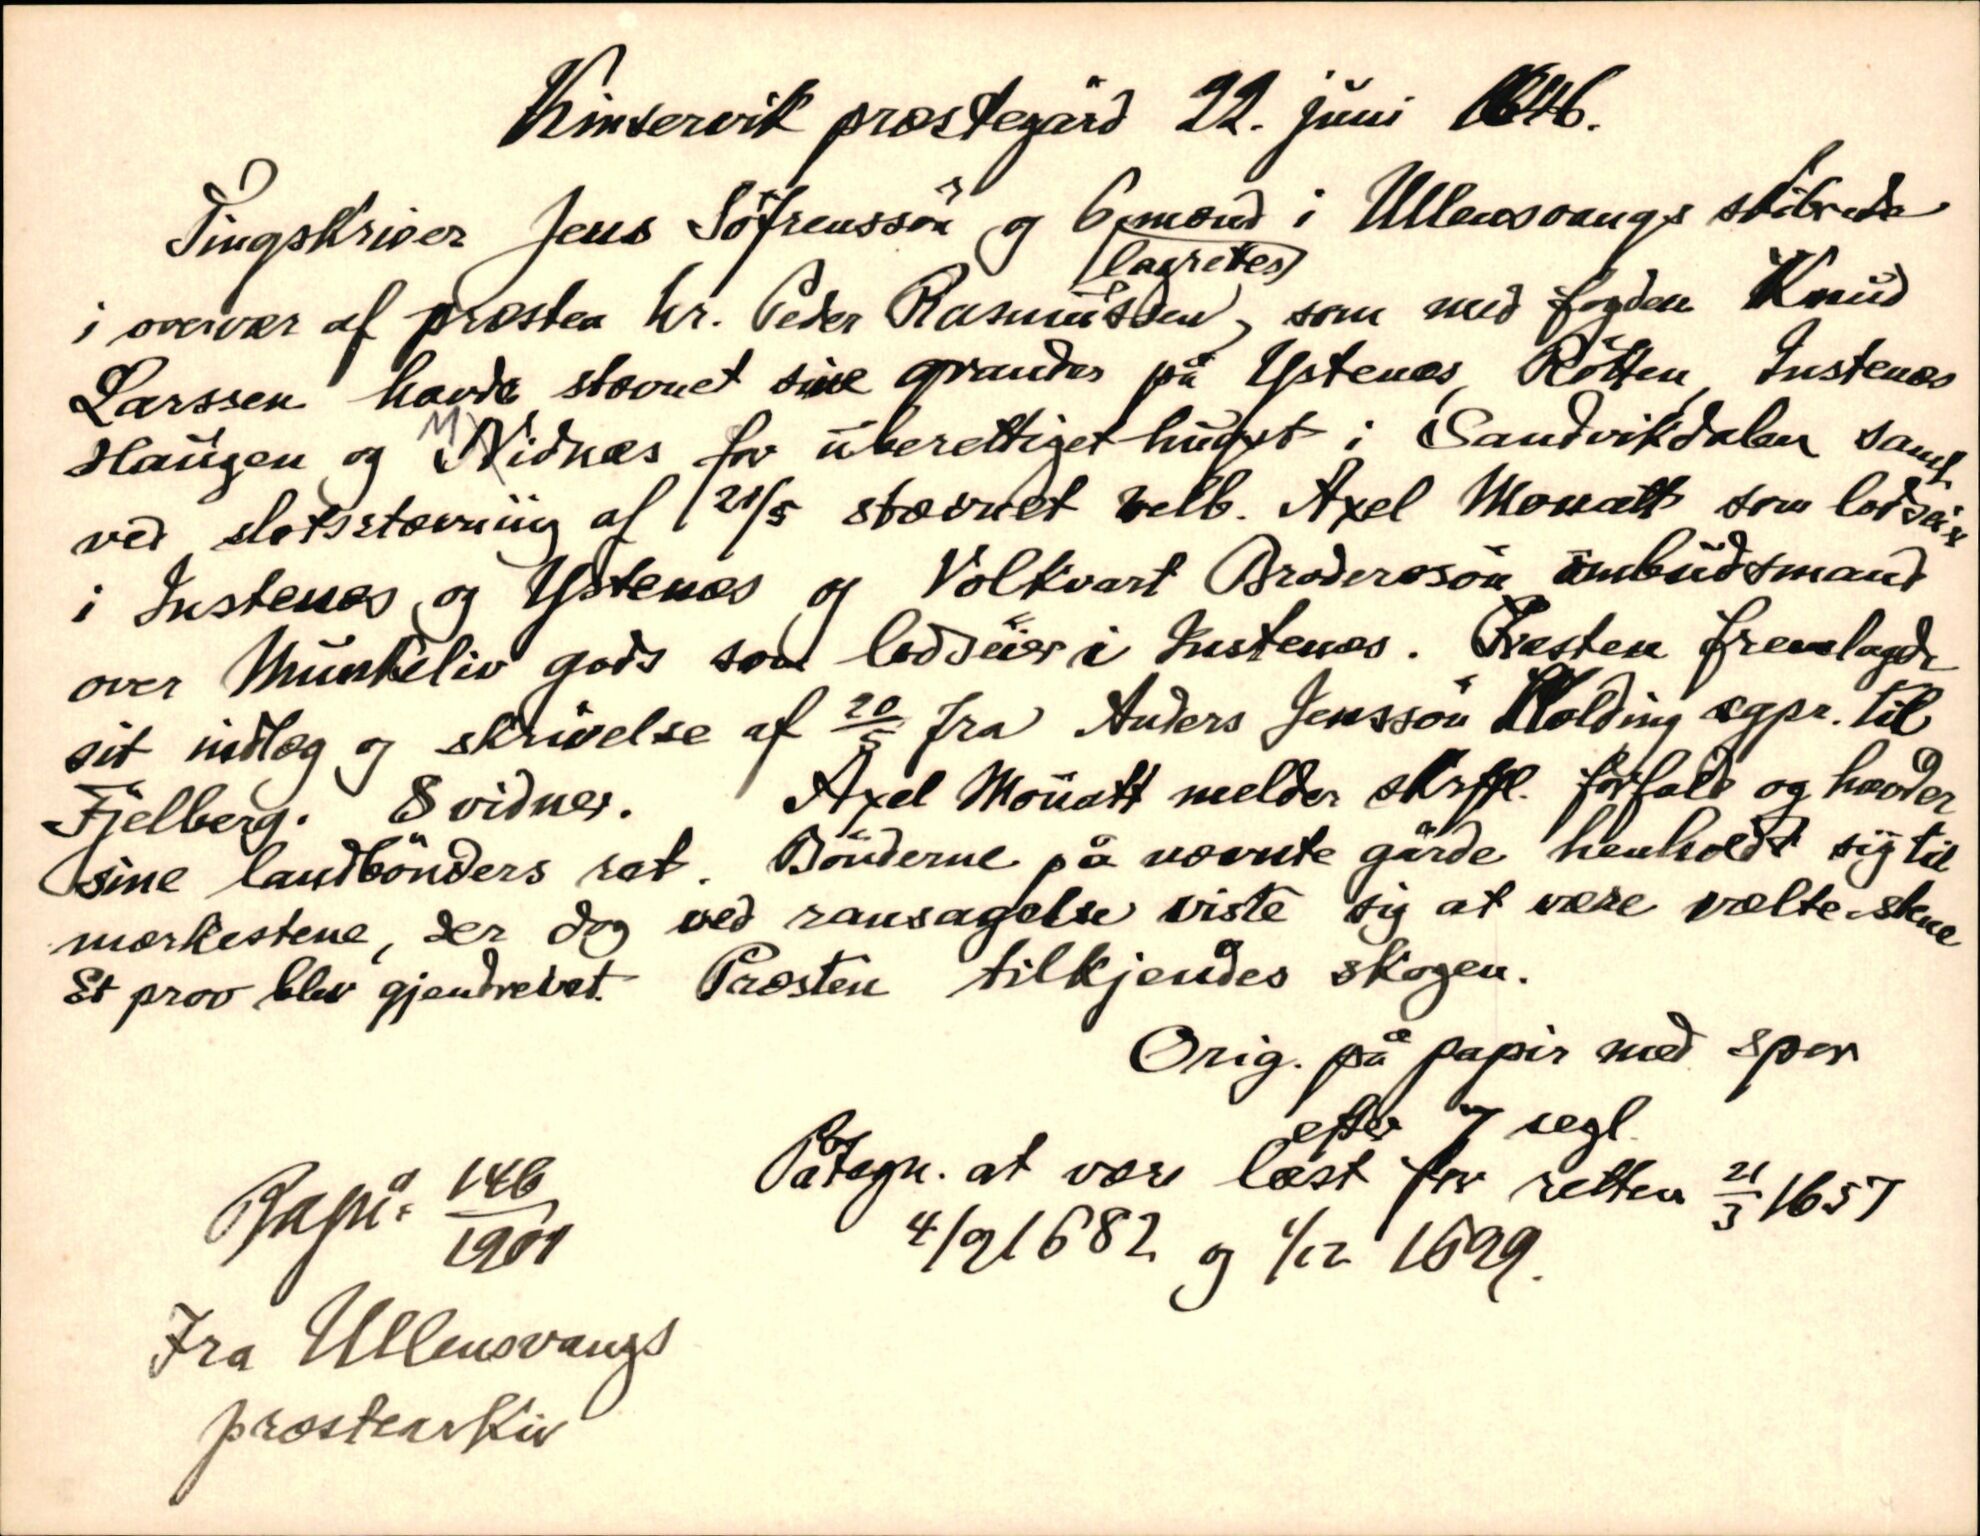 Kinservik præstegård 22. juni 1646.
Tingskriver Jens Söfrenssön og 6 mænd i Ullensvangs skibrede
lagrettes
i overvær af præsten hr. Peder Rasmussen, som med fogden Knud
Larssen havde stævnet sine grander på Ystenæs, Rötten, Instenæs
Haugen og Nidnæs for uberettiget hugst i Sandvikdalen samt
M
ved slotsstævning af 21/5 stævnet velb. Axel Mouatt som lodseier
i Instenæs og Ystenæs og Volkvart Broderssön ombudsmand
over Munkeliv gods som lodseier i Instenæs. Præsten fremlagde
sit indlæg og skrivelse af 20/5 fra Anders Jenssön Kolding sgpr. til
Fjelberg. 8 vidner. Axel Mouatt melder skrftl. forfald og hævder
sine landbönders ret. Bönderne på nævnte gårde henholdt sig til
merkestene, der dog ved ransagelse viste sig at være vælte-stene
Et prov blev gjendrevet. Præsten tilkjendes skogen.
Orig. på papir med spor
efter 7 segl.
Påtegn. at være læst for retten 21/3 1657
4/9 1682 og 1/12 1699.
Papir 146/1901
Fra Ullensvangs
prestearkiv